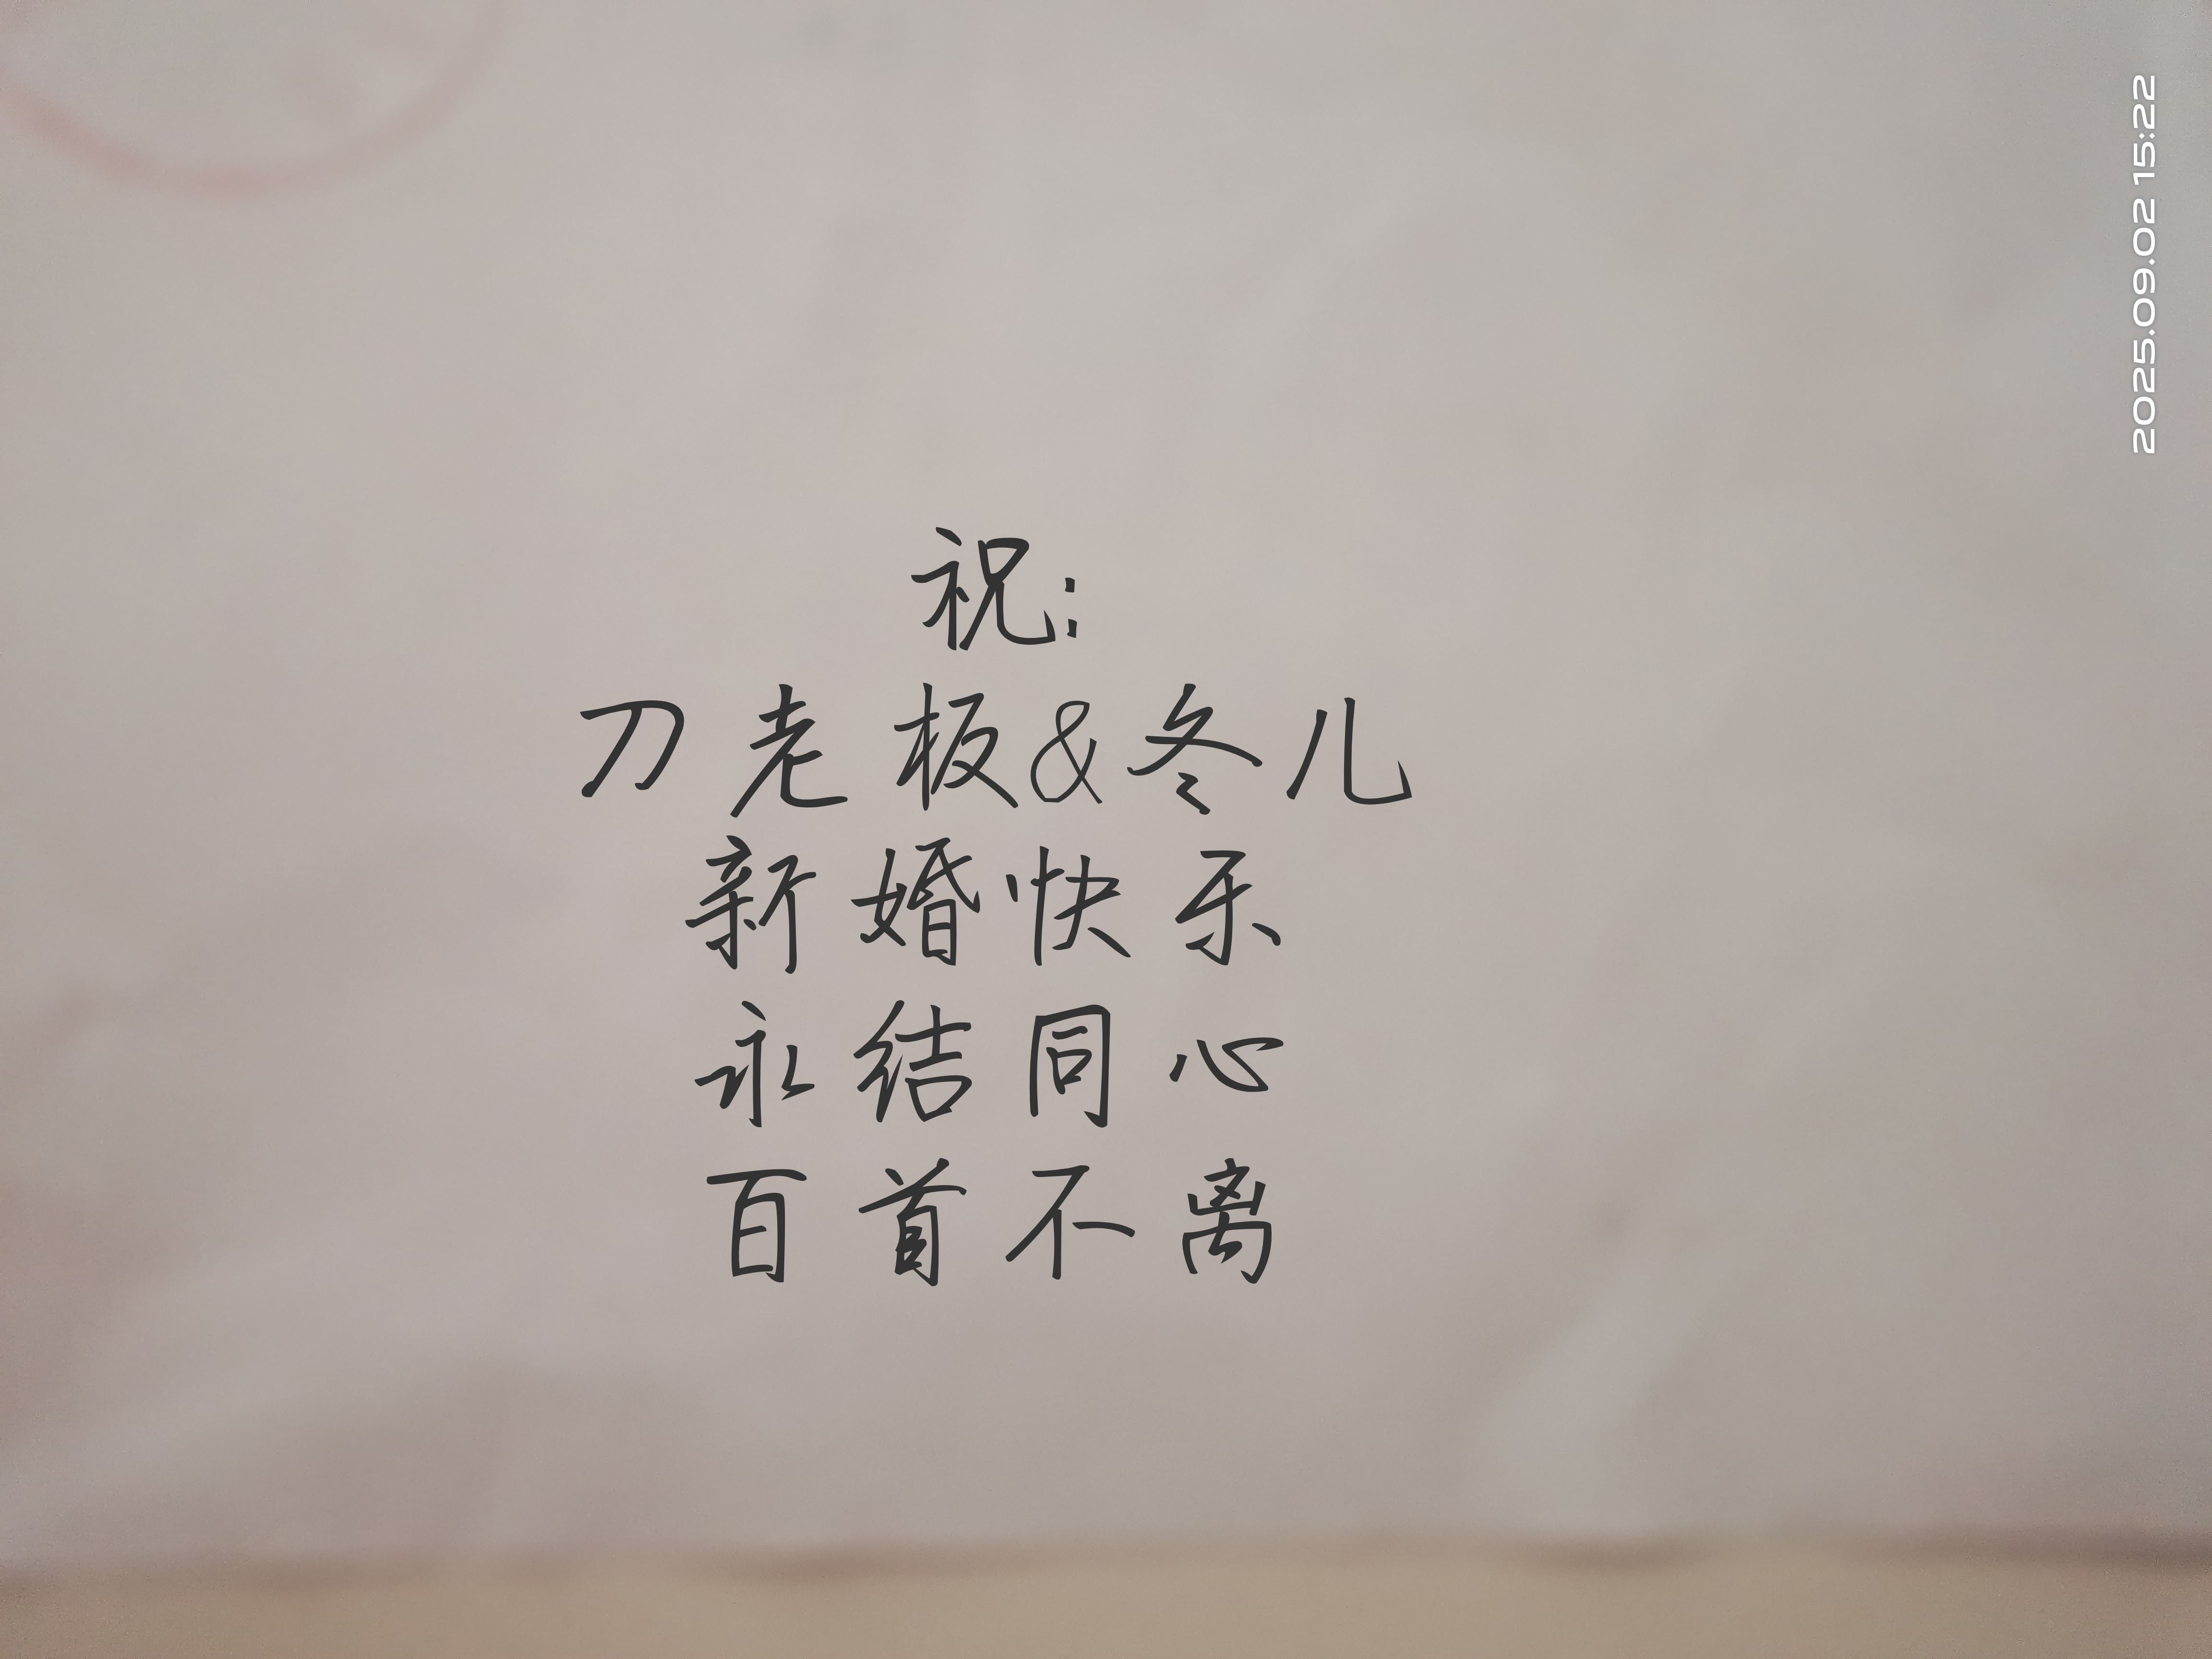 祝:
刀老板&冬儿
新婚快乐
永结同心
百首不离
2025.09.02 15:22